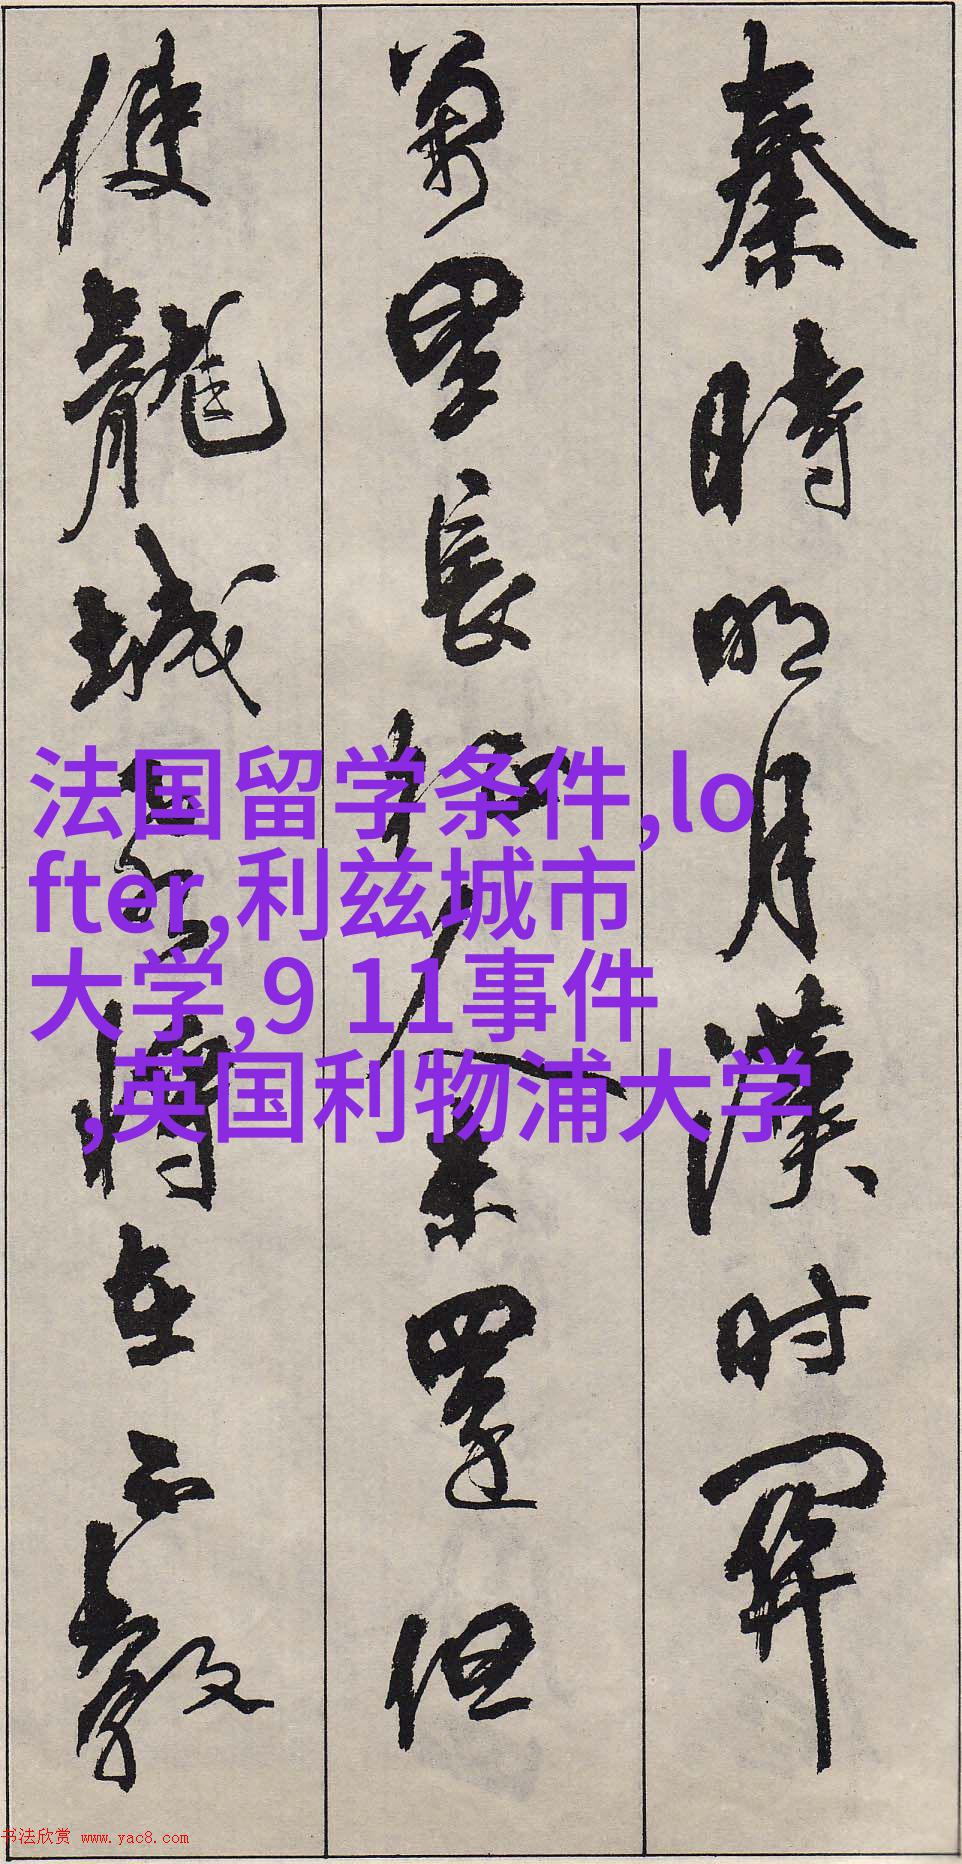 秦時明月漢时關
萬里長征人未還但
使龍城飛將在不教
法国留学条件,lo
fter,利兹城市
大学,9 11事件
,英国利物浦大学
书法欣赏 www.yac8.com